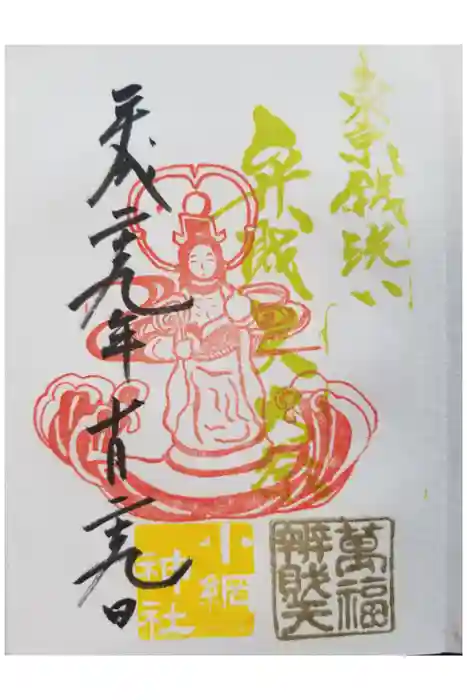 東京銭洗い
弁財天
平成二十九年十月二十九日
萬福
辨財天
小網
神社